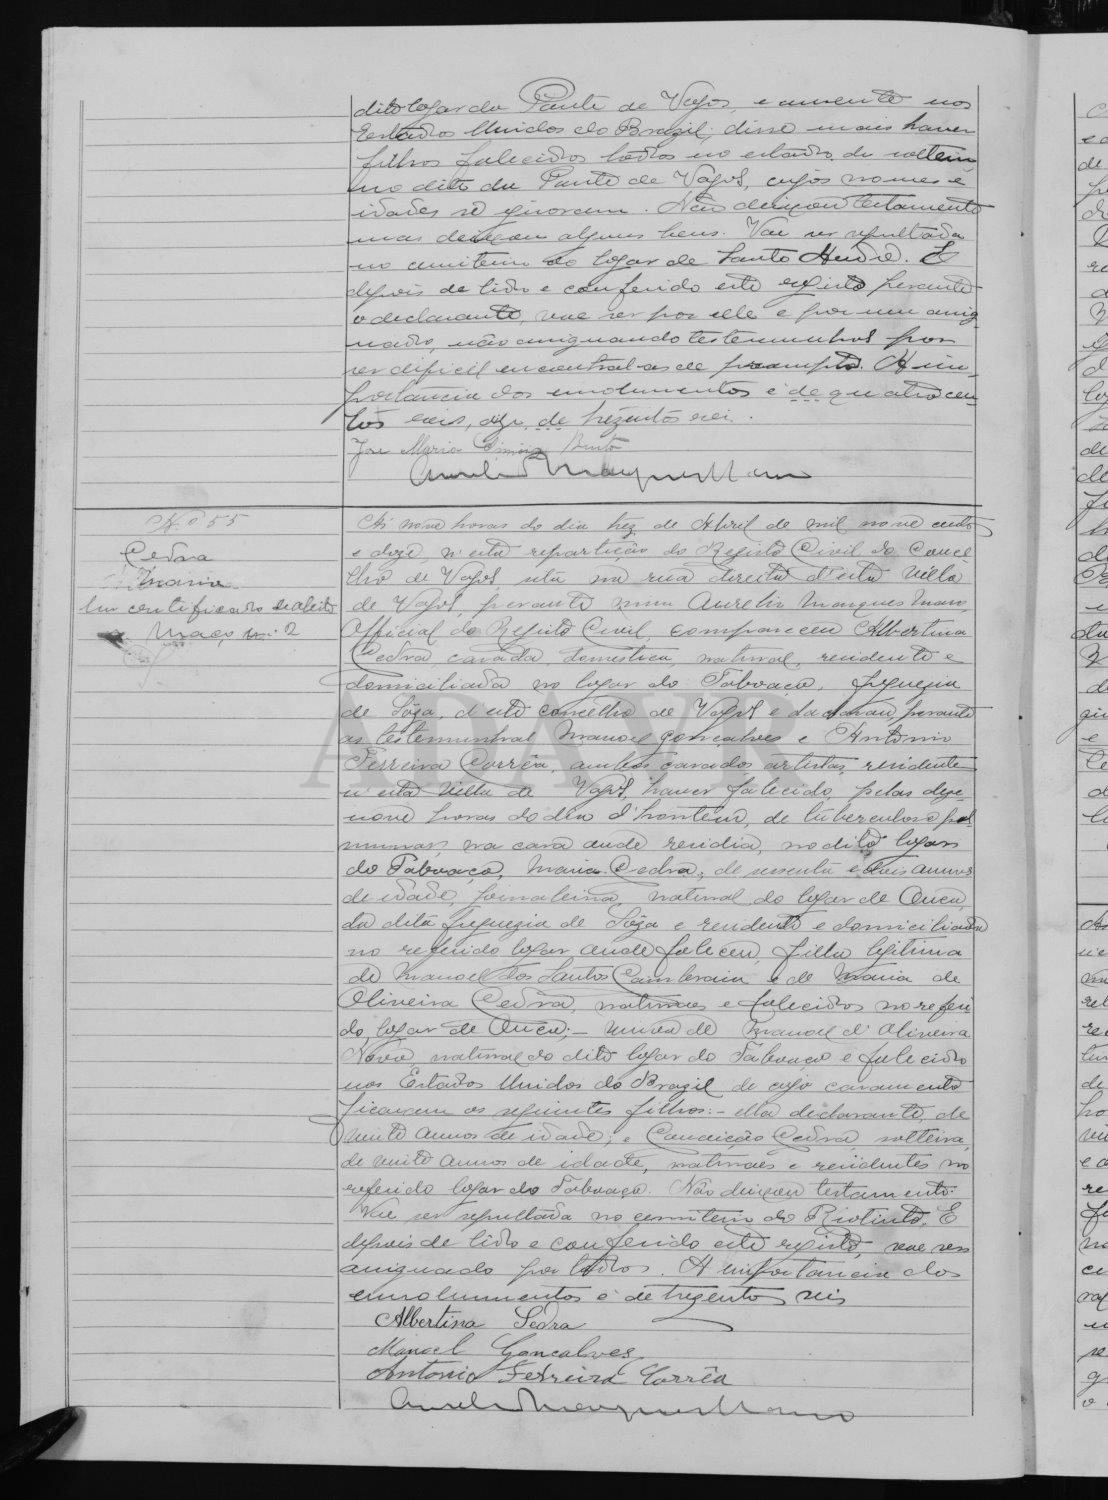 dito logar da Ponte de Vagos, e ausente nos
Estados Unidos do Brazil; disse mais haver
filhos falecidos todos no estado de solteiro
no dito da Ponte de Vagos, cujos nomes e
idades se ignoram. Não deixou testamento
mas deixou alguns bens. Vae ser sepultada
no cemiterio do logar de Santo André. E
depois de lido e conferido este registo perante
o declarante, vae ser por elle e por mim assig-
nado, não assignando testemunhas por
ser dificil encontral-as de prompto. A im-
portancia dos emolumentos é de quatrocen-
tos reis, digo, de trezentos reis.
José Maria Simões Bento
Aurelio Marques Mano
N.º 55
Cedra
Maria
Um certificado de obito
Maço n.º 2
Ás nove horas do dia trez de Abril de mil nove centos
e doze, n'esta repartição do Registo Civil do Conce-
lho de Vagos sita na rua direita d'esta Villa
de Vagos, perante mim Aurelio Marques Mano,
Official do Registo Civil, compareceu Albertina
Cedra, casada, domestica, natural, residente e
domiciliada no logar do Taboaço, freguezia
de Sôza, d'este concelho de Vagos e declarou, perante
as testemunhas Manoel Gonçalves e Antonio
Ferreira Corrêa, ambos casados artistas, residentes
n'esta Villa de Vagos, haver falecido, pelas deze-
nove horas do dia d'hontem, de tuberculose pul-
munar, na casa onde residia, no dito logar
do Taboaço, Maria Cedra, de sessenta e dois annos
de idade, jornaleira, natural do logar de Ouca,
da dita freguezia de Sôza e residente e domiciliada
no referido logar onde faleceu, filha legitima
de Manoel dos Santos Cambraia e de Maria de
Oliveira Cedra, naturaes e falecidos no referi-
do logar de Ouca; - viuva de Manoel d'Oliveira
Novo, natural do dito logar do Taboaço e falecido
nos Estados Unidos do Brazil de cujo casamento
ficaram os seguintes filhos: - ella declarante, de
vinte annos de idade; e Conceição Cedra, solteira,
de vinte annos de idade, naturaes e residentes no
referido logar do Taboaço. Não deixou testamento.
Vae ser sepultada no cemiterio do Riotinto. E
depois de lido e conferido este registo, vae ser
assignado por todos. A importancia dos
emolumentos é de trezentos reis
Albertina Sedra
Manoel Gonçalves
Antonio Ferreira Corrêa
Aurelio Marques Mano
ADAVR